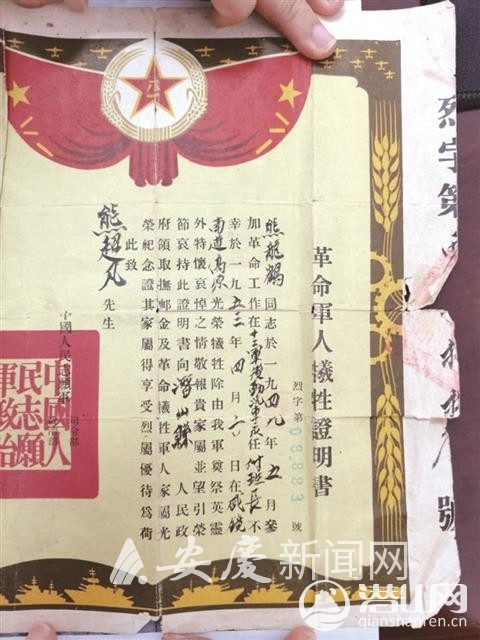 烈字第
號
革命軍人犧牲證明書
烈字第08883號
熊龍鶴同志於一九四九年五月參
加革命工作在十二軍後勤汽車 任付班長不
幸於一九五三年四月六日在咸鏡
南道高原光榮犧牲除由我軍奠祭英靈
外特懷哀悼之情敬報貴家屬並望引榮
節哀持此證明書向潛山縣人民政
府領取撫卹金及革命犧牲軍人家屬光
榮紀念證其家屬得享受烈屬優待為荷
此致
熊超凡先生
中國人民志願軍
司令部
政治部
中國人
民志願
軍政治
八一
安慶新闻网
潜山网
qianshanren.cn